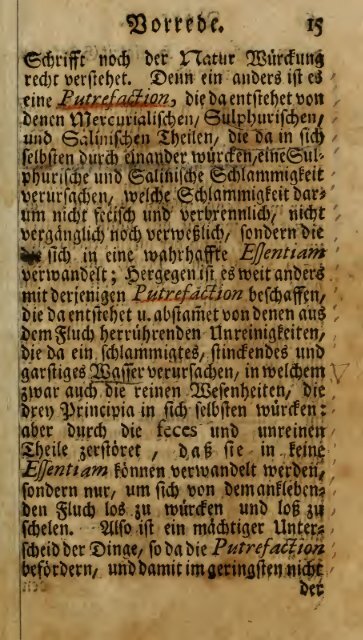 Vorrede. 15
Schrifft noch der Natur Würckung
recht verstehet. Denn ein anders ist es
eine Putrefaction, die da entstehet von
denen Mercurialischen/ Sulphurischen/
und Salinischen Theilen/ die da in sich
selbsten durch einander würcken/ eine Sul-
phurische und Salinische Schlammigkeit
verursachen/ welche Schlammigkeit dar-
um nicht fecisch und verbrennlich/ nicht
vergänglich noch verweßlich/ sondern die
sich in eine wahrhaffte Essentiam
verwandelt; Hergegen ist es weit anders
mit derjenigen Putrefaction beschaffen/
die da entstehet u. abstamet von denen aus
dem Fluch herrührenden Unreinigkeiten/
die da ein schlammigtes/ stinckendes und
garstiges Wasser verursachen/ in welchem
zwar auch die reinen Wesenheiten/ die
drey Principia in sich selbsten würcken:
aber durch die feces und unreinen
Theile zerstöret, daß sie in keine
Essentiam können verwandelt werden/
sondern nur/ um sich von dem ankleben-
den Fluch los zu würcken und loß zu
schelen. Also ist ein mächtiger Unter-
scheid der Dinge/ so da die Putrefaction
befördern/ und damit im geringsten nicht
der